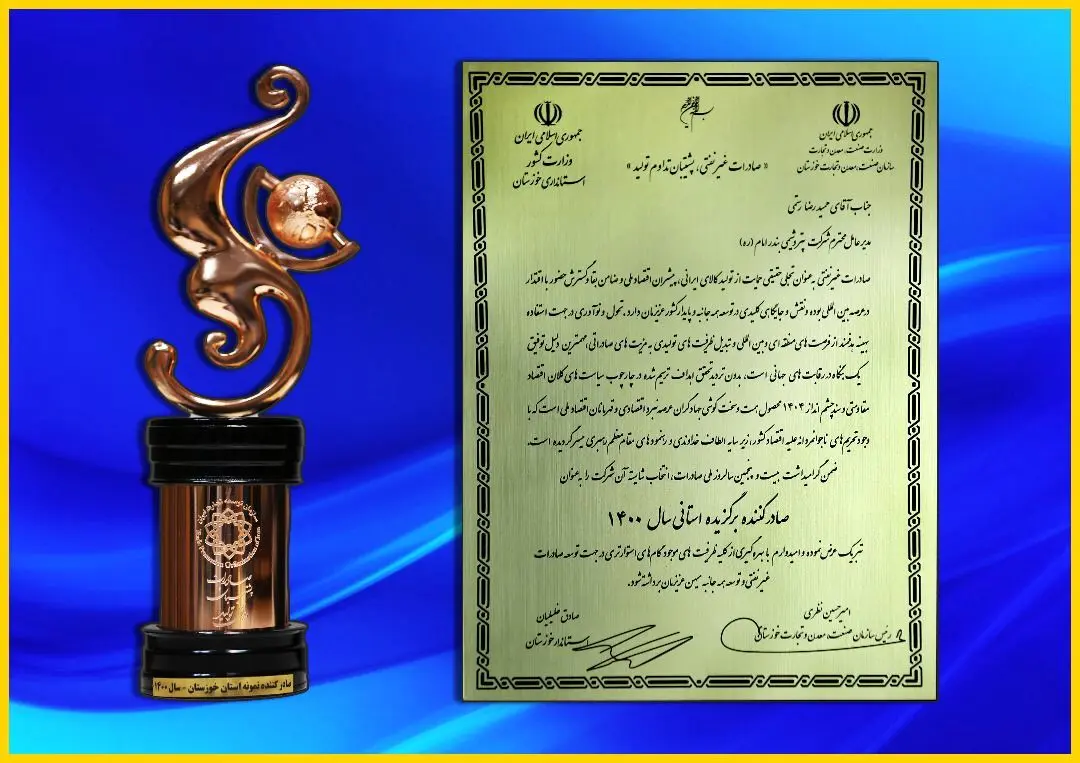 جمهوری اسلامی ایران
وزارت صنعت، معدن و تجارت
سازمان صنعت، معدن و تجارت خوزستان
جمهوری اسلامی ایران
وزارت کشور
استانداری خوزستان
« صادرات غیرنفتی، پشتیبان تداوم تولید »
جناب آقای حمیدرضا رستمی
مدیرعامل محترم شرکت پتروشیمی بندر امام (ره)
صادرات غیرنفتی به عنوان تجلی حقیقی حمایت از تولید کالای ایرانی، پیشران اقتصاد ملی و ضامن بقا و گسترش حضور با اقتدار
در عرصه بین المللی بوده و نقش و جایگاهی کلیدی در توسعه همه جانبه و پایدار کشور عزیزمان دارد، تحول و نوآوری در جهت استفاده
بهینه هدفمند از فرصت های منطقه ای و بین المللی و تبدیل ظرفیت های تولیدی به مزیت های صادراتی، مهمترین دلیل توفیق
یک بنگاه در رقابت های جهانی است، بدون تردید تحقق اهداف ترسیم شده در چارچوب سیاست های کلان اقتصاد
مقاومتی و سند چشم انداز ۱۴۰۴ محصول همت و سخت کوشی جهادگران عرصه نبرد اقتصادی و قهرمانان اقتصاد ملی است که با
وجود تحریم های ناجوانمردانه علیه اقتصاد کشور، زیر سایه الطاف خداوندی و رهنمودهای مقام معظم رهبری میسر گردیده است.
ضمن گرامیداشت بیست و پنجمین سالروز ملی صادرات، انتخاب شایسته آن شرکت را به عنوان
صادرکننده برگزیده استانی سال ۱۴۰۰
تبریک عرض نموده و امیدوارم با بهره گیری از کلیه ظرفیت های موجود گام های استوارتری در جهت توسعه صادرات
غیرنفتی و توسعه همه جانبه میهن عزیزمان برداشته شود.
امیرحسین نظری
رئیس سازمان صنعت، معدن و تجارت خوزستان
صادق خلیلیان
استاندار خوزستان
سازمان توسعه تجارت ایران
Trade Promotion Organization of Iran
صادرات
پشتیبان
تولید
صادر کننده نمونه استان خوزستان - سال ۱۴۰۰